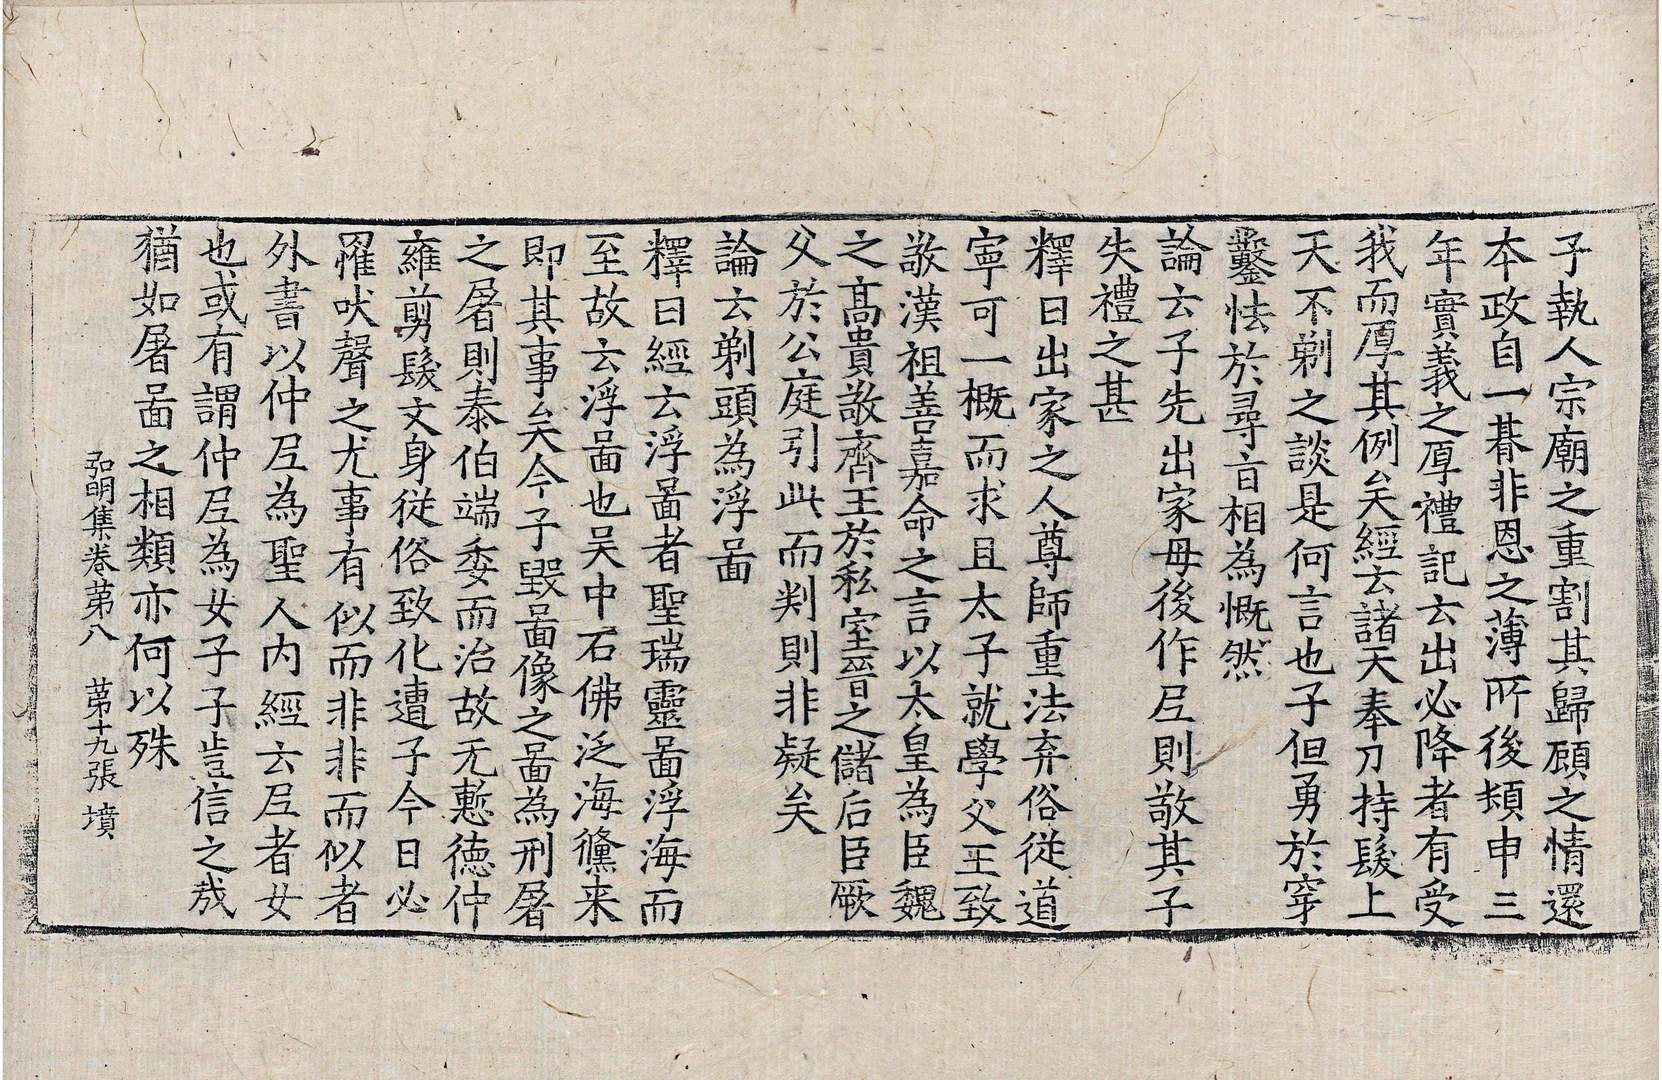 子執人宗廟之重割其歸顧之情還
本政自一朞非恩之薄所後頬申三
年實義之厚禮記云出必降者有受
我而厚其例矣經云諸天奉刀持髮上
天不剃之談是何言也子但勇於穿
鑿怯於尋盲相為慨然
論云子先出家母後作𡰱則敬其子
失禮之甚
釋曰出家之人尊師重法弃俗從道
寧可一概而求且太子就學父王致
敬漢祖善嘉命之言以太皇為臣魏
之髙貴敬齊王於私室晉之儲后臣厥
父於公庭引此而判則非疑矣
論云剃頭為浮啚
釋曰經云浮啚者聖瑞靈啚浮海而
至故云浮啚也吴中石佛泛海儻来
即其事矣今子毀啚像之啚為刑屠
之屠則泰伯端委而治故无慙徳仲
雍剪髮文身從俗致化遭子今日必
罹吠聲之尤事有似而非非而似者
外書以仲𡰱為聖人内經云𡰱者女
也或有謂仲𡰱為女子子豈信之㦲
猶如屠啚之相類亦何以殊
弘明集卷苐八 苐十九張 墳